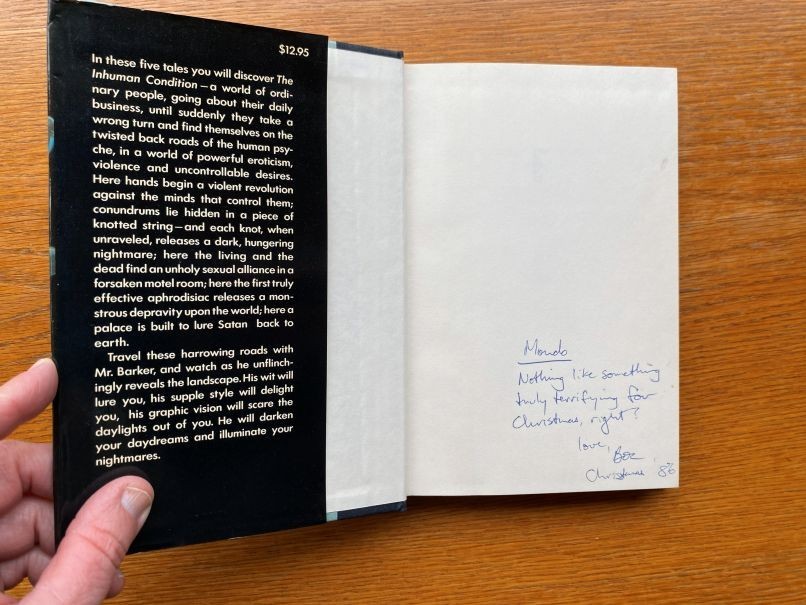 $12.95
In these five tales you will discover The
Inhuman Condition—a world of ordi-
nary people, going about their daily
business, until suddenly they take a
wrong turn and find themselves on the
twisted back roads of the human psy-
che, in a world of powerful eroticism,
violence and uncontrollable desires.
Here hands begin a violent revolution
against the minds that control them;
conundrums lie hidden in a piece of
knotted string—and each knot, when
unraveled, releases a dark, hungering
nightmare; here the living and the
dead find an unholy sexual alliance in a
forsaken motel room; here the first truly
effective aphrodisiac releases a mon-
strous depravity upon the world; here a
palace is built to lure Satan back to
earth.
Travel these harrowing roads with
Mr. Barker, and watch as he unflinch-
ingly reveals the landscape. His wit will
lure you, his supple style will delight
you, his graphic vision will scare the
daylights out of you. He will darken
your daydreams and illuminate your
nightmares.
Mondo
Nothing like something
truly terrifying for
Christmas, right?
love,
Christmas '86